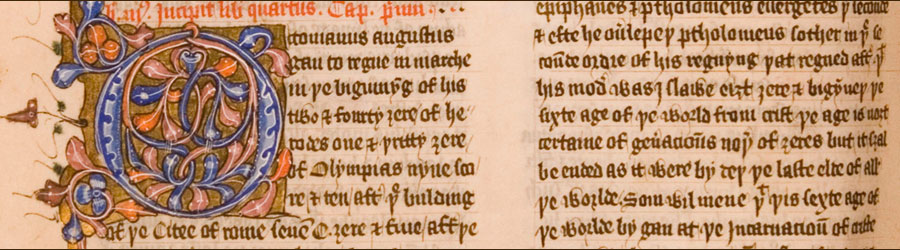 Incipit libr quartus. Cap. primu
Octouianus augustus
gan to regne in marche
in þe bigynnyg of his
two & fourty ȝere of he
rodes one & þritty ȝere
of Olympias nyne sco
re & ten/ aftr þt bulding
of þe Citee of rome seuen C. ȝere & fiue/ aff þe
epiphanes & ptholomeus euergetes þe
& efte he ptholomeus sother in þe se
counde ordre of his regnyng þat regned aftr þt
his mod was I slawe eiȝt ȝere & þe
sixte age of þe world from crist. þe age is
certaine of noþr of ȝeres but it
be ended as it were by þe laste elde of all
þe worlde. Som wil mene þt þis sexte age of
þe worlde by gan at þe Incarnacioun of